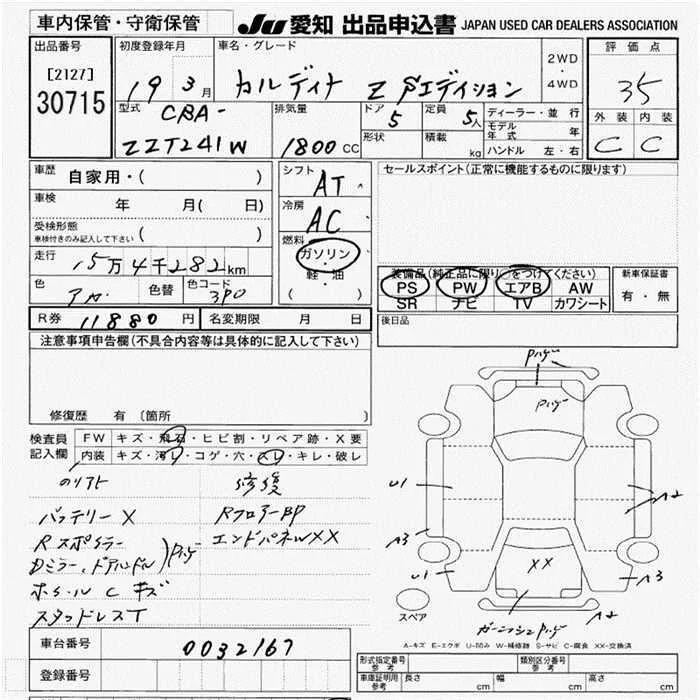 車内保管・守衛保管
JU 愛知 出品申込書 JAPAN USED CAR DEALERS ASSOCIATION
出品番号
[2127]
30715
初度登録年月
19 3月
車名・グレード
カルディナ Z Sエディション
2WD
・
4WD
評価点
35
外装 内装
C C
型式
CBA-
ZZT241W
排気量
1800 CC
ドア
5
定員
5人
形状
積載
kg
ディーラー・並行
モデル年式 年
ハンドル 左・右
車歴 自家用・( )
車検 年 月( 日)
受検形態
車検付きのみ記入して下さい ( )
走行
15万4千282km
色
色替
色コード
3P0
シフト
AT
冷房
AC
燃料
ガソリン
・
軽・油
( )
セールスポイント(正常に機能するものに限ります)
装備品(純正品に限り○をつけてください)
PS PW エアB AW
SR ナビ TV カワシート
新車保証書
有・無
後日品
R券 11880 円
名変期限 月 日
注意事項申告欄(不具合内容等は具体的に記入して下さい)
修復歴 有 (箇所
検査員記入欄
FW キズ・飛石・ヒビ割・リペア跡・X要
内装 キズ・汚レ・コゲ・穴・スレ・キレ・破レ
修復
バッテリーX
RフロアーBP
Rスポイラー
エンドパネルXX
Dミラー、ドアハンドル
ホイールCキズ
スタッドレスT
U1
A3
U1
A2
A3
A2
XX
スペア
A-キズ E-エクボ U-凹み W-補修跡 S-サビ C-腐食 XX-交換済
車台番号
0032167
登録番号
形式指定番号
参考
類別区分番号
参考
車庫証明用
参考
長さ cm
幅 cm
高さ cm